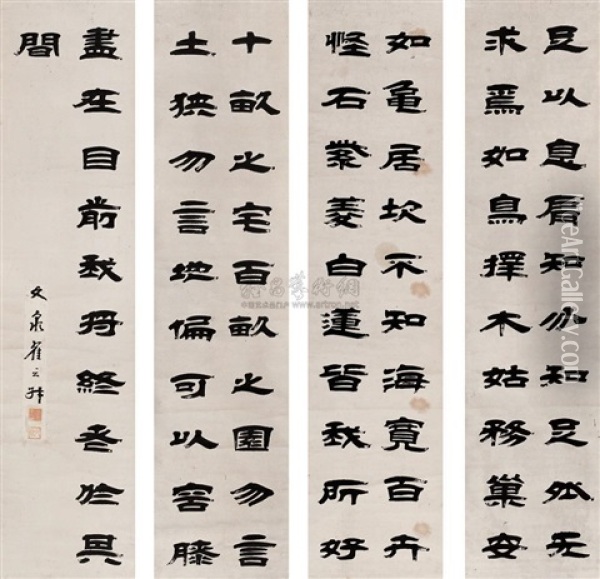 足以息肩知分知足外无
求焉如鳥擇木姑務巢安
如龜居坎不知海寬百卉
怪石紫菱白蓮皆我所好
十畝之宅百畝之園勿言
土狹勿言地偏可以容膝
盡在目前我將終老於其
間
文泉崔云
雅昌藝術網